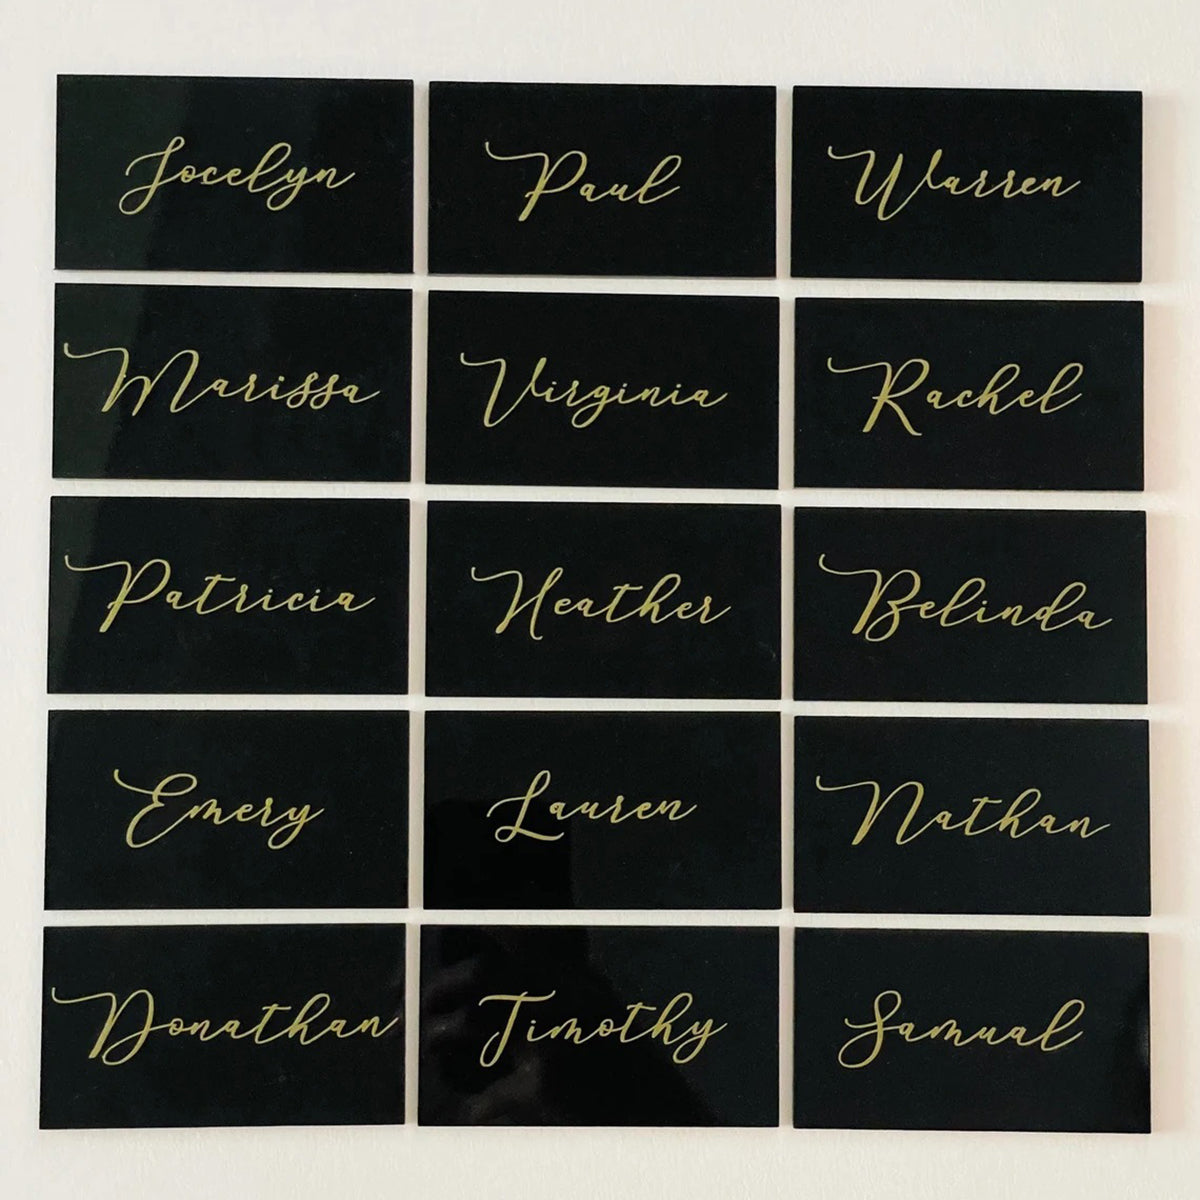 Jocelyn
Paul
Warren
Marissa
Virginia
Rachel
Patricia
Heather
Belinda
Emery
Lauren
Nathan
Donathan
Timothy
Samual